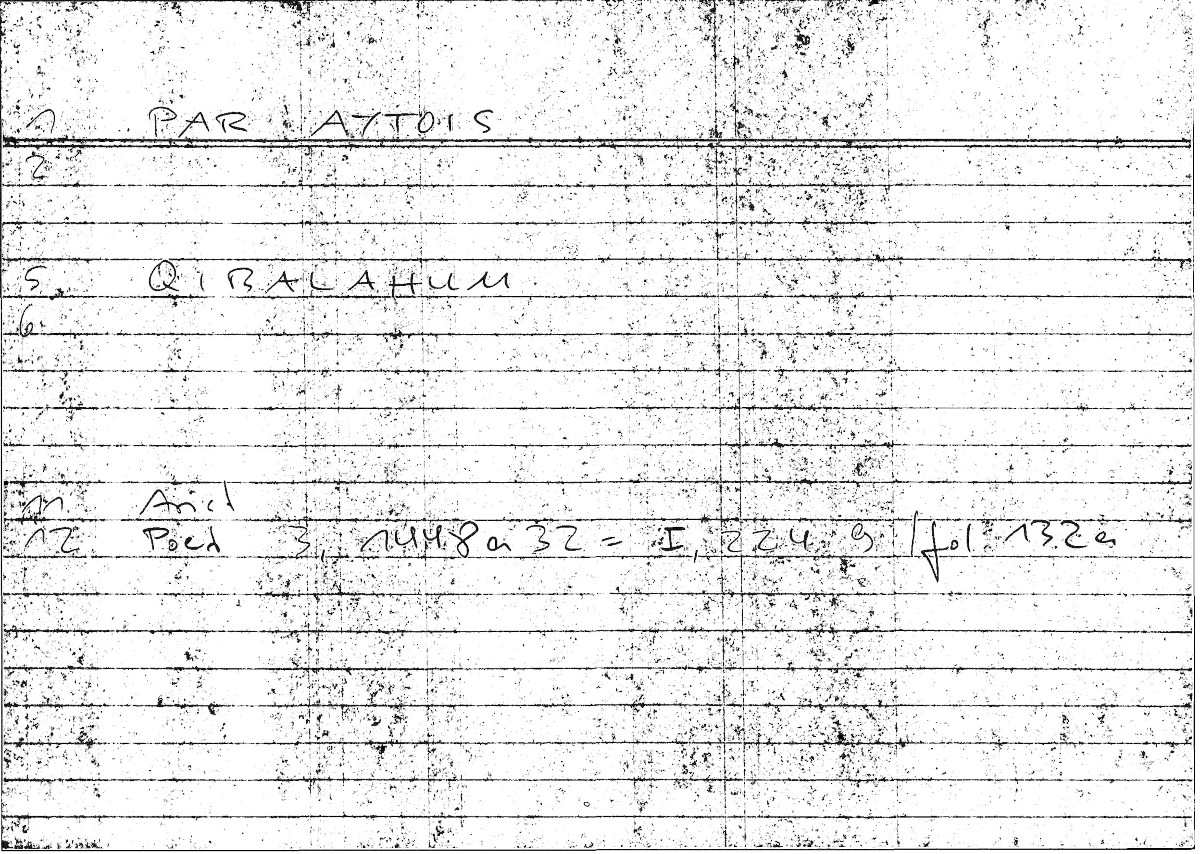 1 PAR AYTOIS
2
5 QIBALAHUM
6
11 Arist
12 Poet 3, 1448a 32 = I, 224 9 /fol. 132a